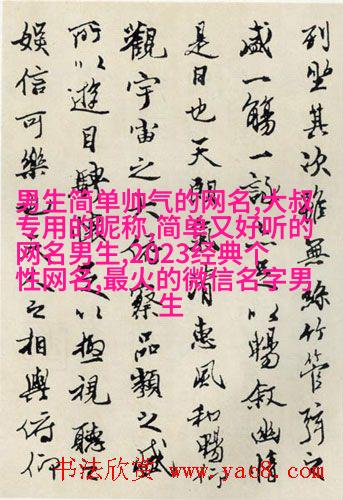 列坐其次雖無絲竹管弦之
盛一觴一詠亦足以暢敘幽情
是日也天朗氣清惠風和暢仰
觀宇宙之大俯察品類之盛
所以遊目騁懷足以極視聽之
娛信可樂也夫人之相與俯仰
男生简单帅气的网名,大叔
专用的昵称,简单又好听的
网名男生,2023经典个
性网名,最火的微信名字男
生
书法欣赏 www.yac8.com